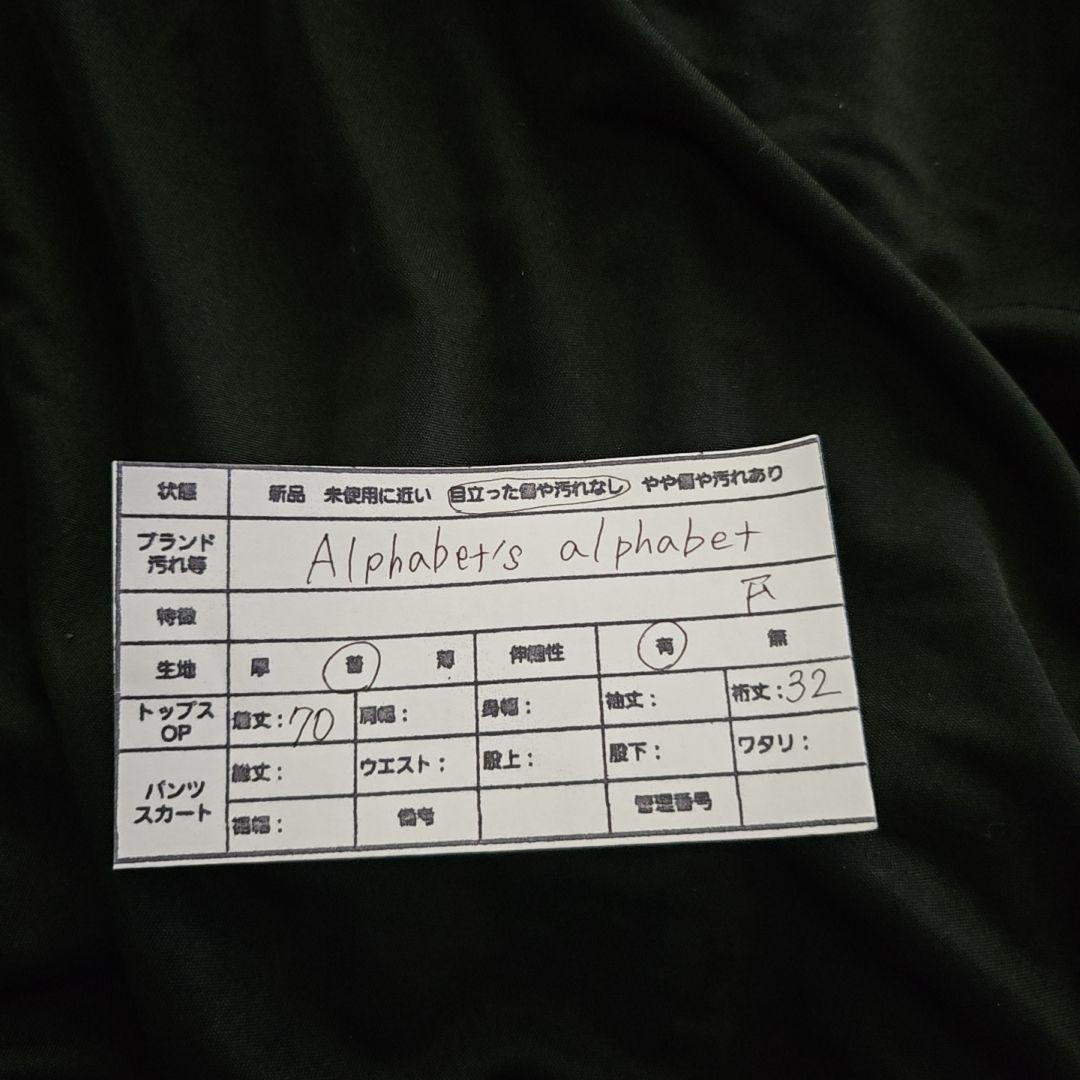 状態 新品 未使用に近い 目立った傷や汚れなし やや傷や汚れあり
ブランド 汚れ等 Alphabet's alphabet
特徴
生地 厚 普 薄 伸縮性 有 無
トップス OP 着丈:70 肩幅: 身幅: 袖丈: 裄丈:32
パンツ スカート 総丈: ウエスト: 股上: 股下: ワタリ:
裾幅: 備考 管理番号